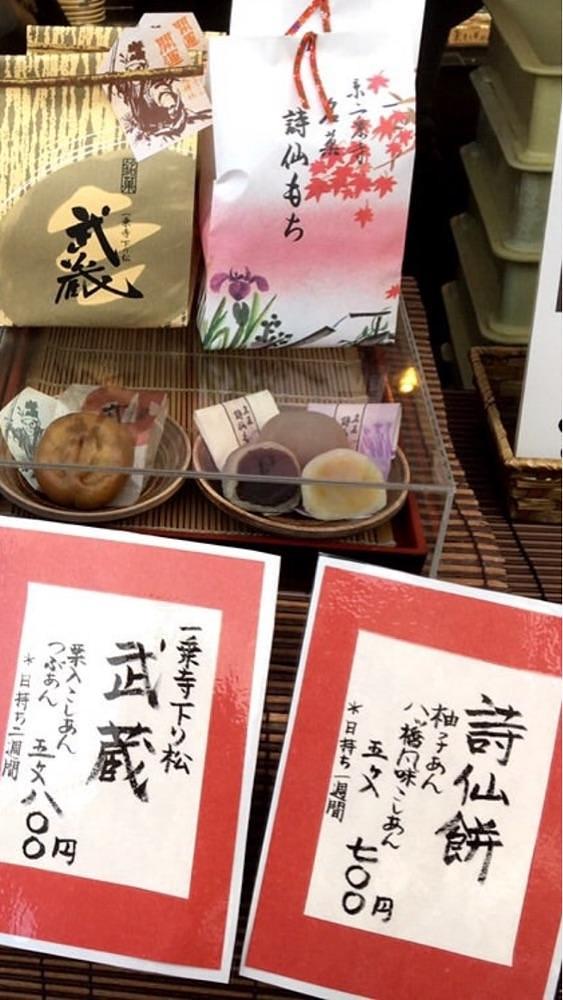 開運
銘菓
一乗寺下り松
武蔵
京一乗寺
名菓
詩仙もち
武蔵
一乗寺下り松
武蔵
栗入こしあん
つぶあん
五ケ入
八〇〇円
*日持ち二週間
詩仙餅
柚子あん
八ッ橋風味こしあん
五ケ入
七〇〇円
*日持ち一週間